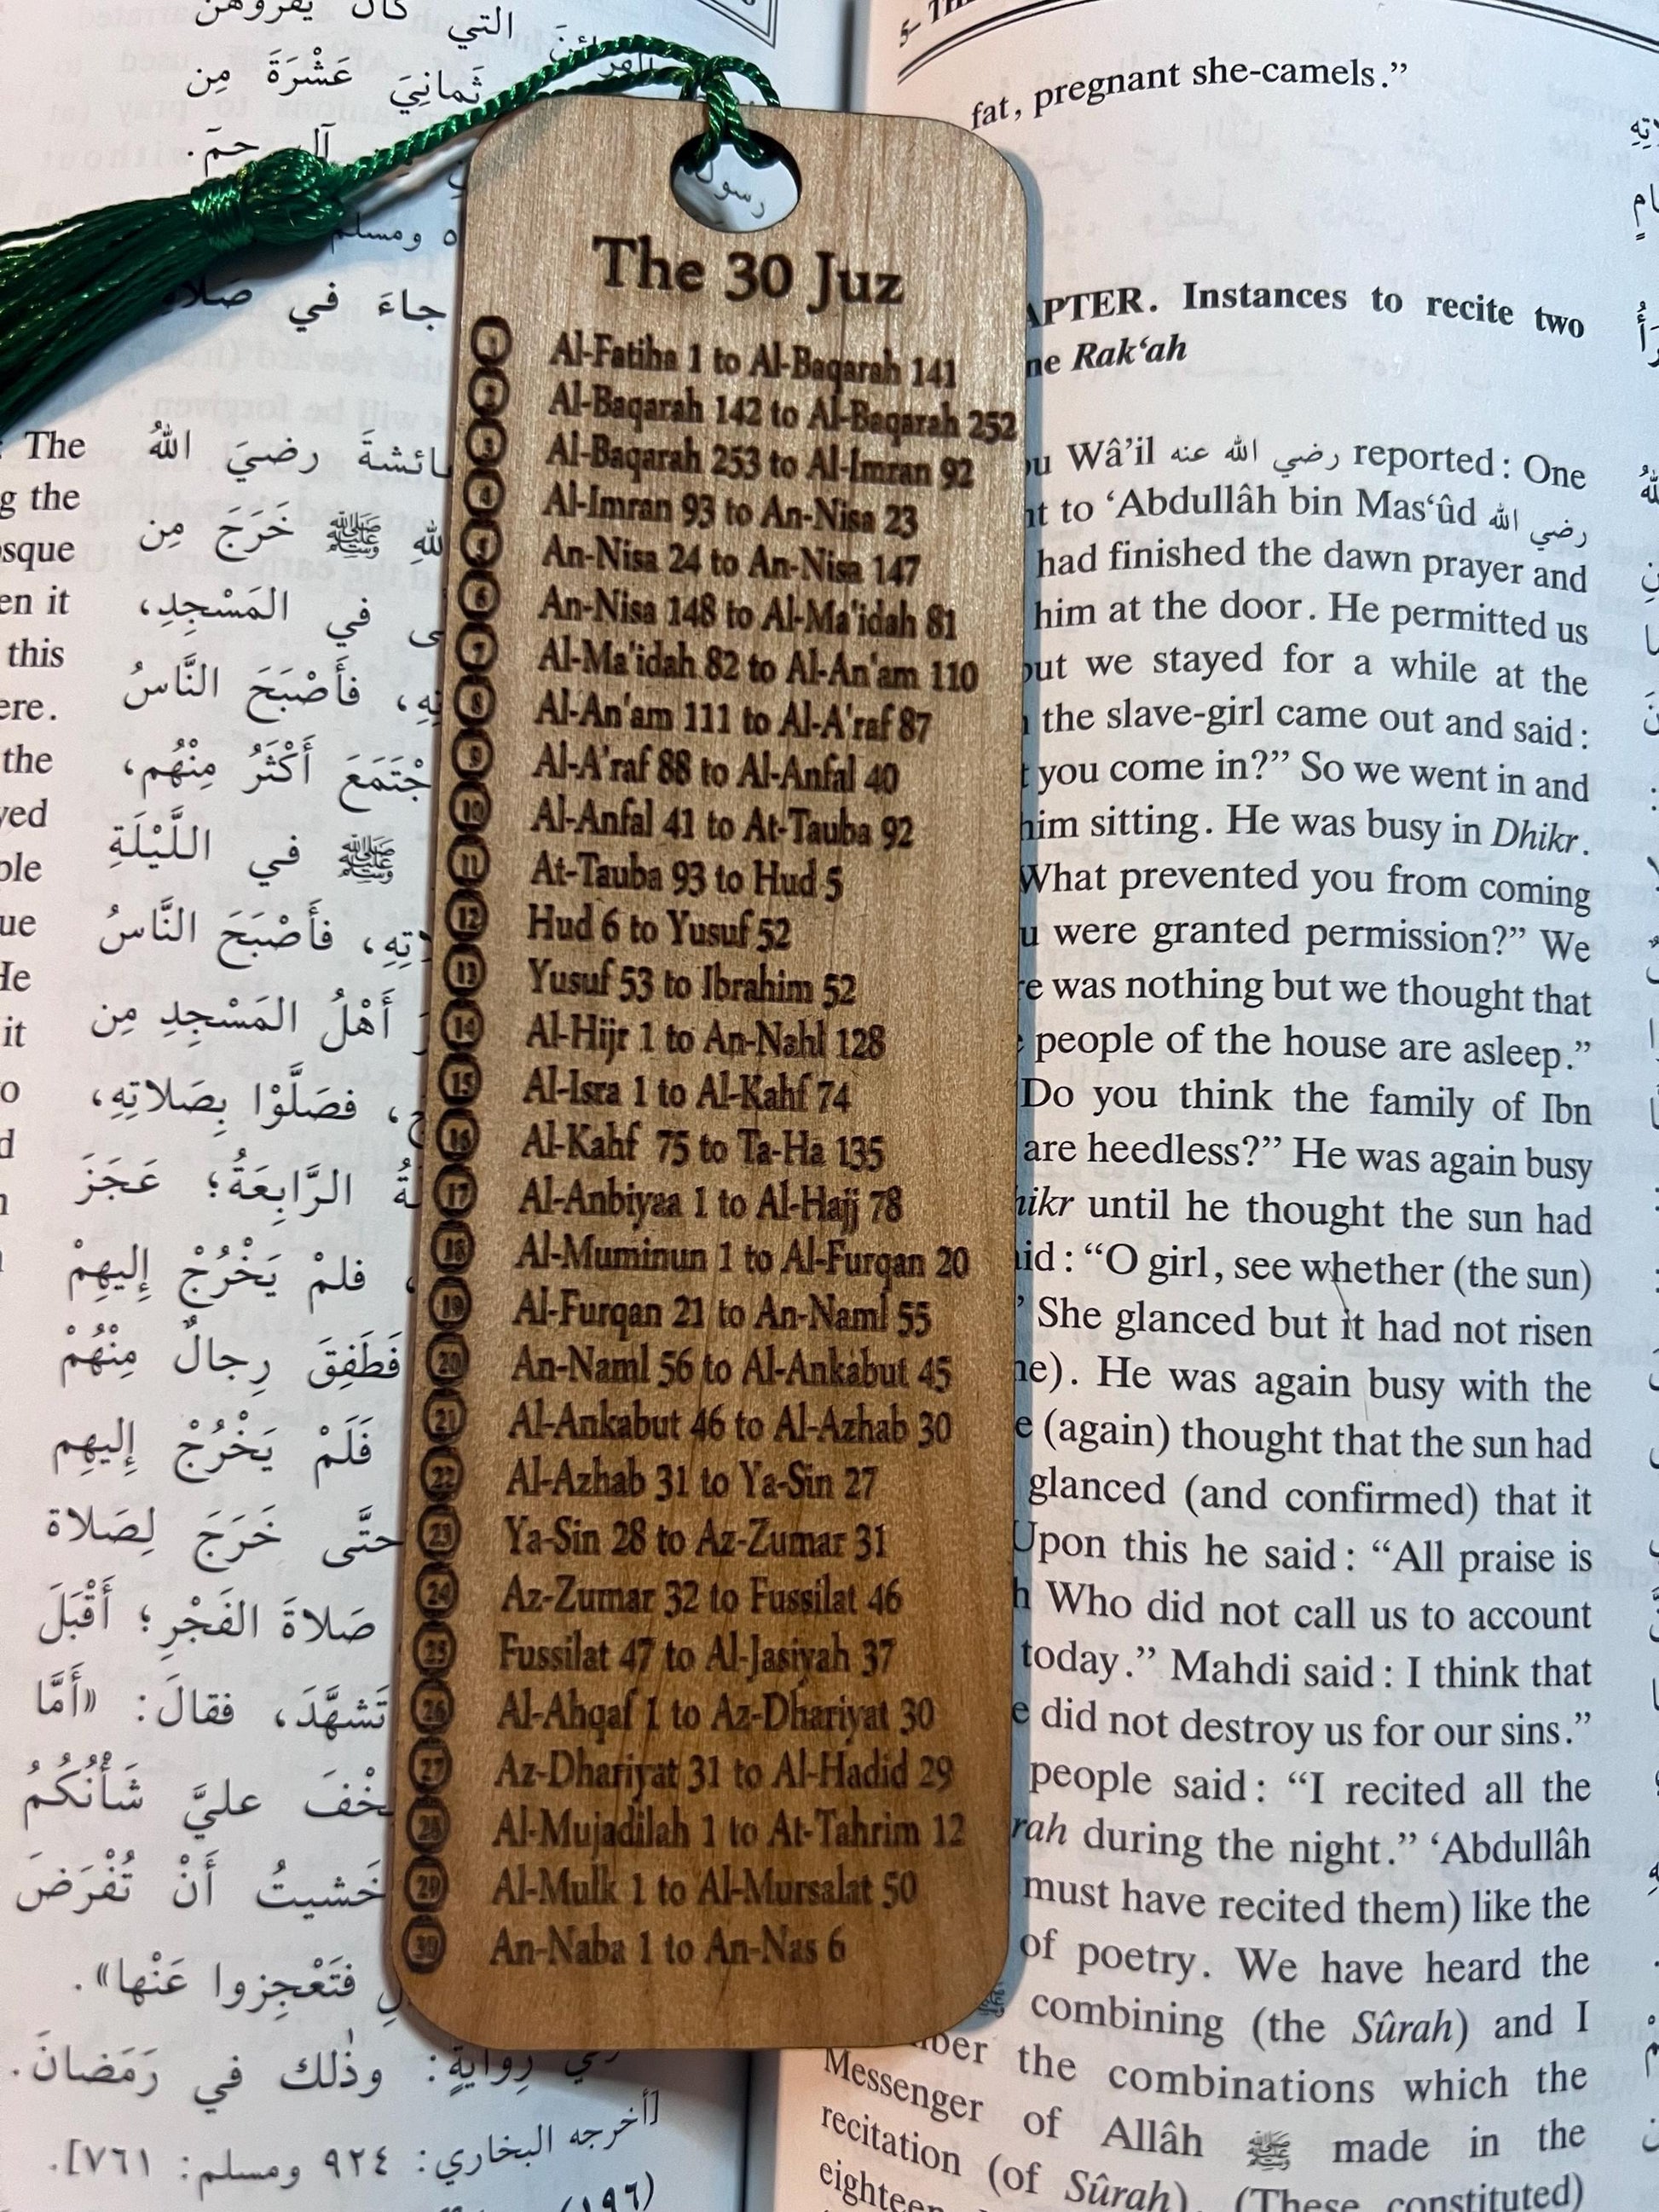 The 30 Juz
1 Al-Fatiha 1 to Al-Baqarah 141
2 Al-Baqarah 142 to Al-Baqarah 252
3 Al-Baqarah 253 to Al-Imran 92
4 Al-Imran 93 to An-Nisa 23
An-Nisa 24 to An-Nisa 147
6 An-Nisa 148 to Al-Ma'idah 81
7 Al-Ma'idah 82 to Al-An'am 110
8 Al-An'am 111 to Al-A'raf 87
9 Al-A'raf 88 to Al-Anfal 40
10 Al-Anfal 41 to At-Tauba 92
11 At-Tauba 93 to Hud 5
12 Hud 6 to Yusuf 52
13 Yusuf 53 to Ibrahim 52
14 Al-Hijr 1 to An-Nahl 128
15 Al-Isra 1 to Al-Kahf 74
16 Al-Kahf 75 to Ta-Ha 135
17 Al-Anbiyaa 1 to Al-Hajj 78
18 Al-Muminun 1 to Al-Furqan 20
19 Al-Furqan 21 to An-Naml 55
20 An-Naml 56 to Al-Ankabut 45
21 Al-Ankabut 46 to Al-Azhab 30
22 Al-Azhab 31 to Ya-Sin 27
23 Ya-Sin 28 to Az-Zumar 31
24 Az-Zumar 32 to Fussilat 46
25 Fussilat 47 to Al-Jasiyah 37
26 Al-Ahqaf 1 to Az-Dhariyat 30
27 Az-Dhariyat 31 to Al-Hadid 29
28 Al-Mujadilah 1 to At-Tahrim 12
29 Al-Mulk 1 to Al-Mursalat 50
30 An-Naba 1 to An-Nas 6
التي كان يقروهن
ثَمانِيَ عَشْرَةَ مِن
آلِ حمَ.
ومسلم
جاءَ في صَلاةِ
رسول
The
رضيَ اللهُ
the
ﷺ خَرَجَ مِن
it
في المَسْجِدِ،
this
فَأَصْبَحَ النَّاسُ
the
أَكْثَرُ مِنْهُم،
ﷺ في اللَّيْلَةِ
فَأَصْبَحَ النَّاسُ
أَهْلُ المَسْجِدِ مِن
it
فصَلَّوْا بِصَلاتِهِ،
الرَّابِعَةُ؛ عَجَزَ
فلمْ يَخْرُجْ إِليهِمْ
فَطَفِقَ رِجالٌ مِنْهُمْ
فَلَمْ يَخْرُجْ إِليهِم
حتَّى خَرَجَ لِصَلاة
صَلاةَ الفَجْرِ؛ أَقْبَلَ
تَشهَّدَ، فقالَ: «أَمَّا
عليَّ شَأْنُكُمُ
خَشيتُ أَنْ تُفْرَضَ
فتَعْجِزوا عَنْها».
رِوايةٍ: وذٰلك في رَمَضانَ.
[أخرجه البخاري: ٩٢٤ ومسلم: ٧٦١].
(١٩٦)
fat, pregnant she-camels.”
Instances to recite two
Rak‘ah
Wâ’il رضي الله عنه reported: One
to ‘Abdullâh bin Mas‘ûd رضي الله
had finished the dawn prayer and
him at the door. He permitted us
we stayed for a while at the
the slave-girl came out and said:
you come in?” So we went in and
him sitting. He was busy in Dhikr.
What prevented you from coming
were granted permission?” We
was nothing but we thought that
people of the house are asleep.”
Do you think the family of Ibn
are heedless?” He was again busy
until he thought the sun had
“O girl, see whether (the sun)
She glanced but it had not risen
He was again busy with the
(again) thought that the sun had
glanced (and confirmed) that it
Upon this he said: “All praise is
Who did not call us to account
today.” Mahdi said: I think that
did not destroy us for our sins.”
people said: “I recited all the
during the night.” ‘Abdullâh
must have recited them) like the
of poetry. We have heard the
combining (the Sûrah) and I
the combinations which the
Messenger of Allâh ﷺ made in the
recitation (of Sûrah). (These constituted)
eighteen